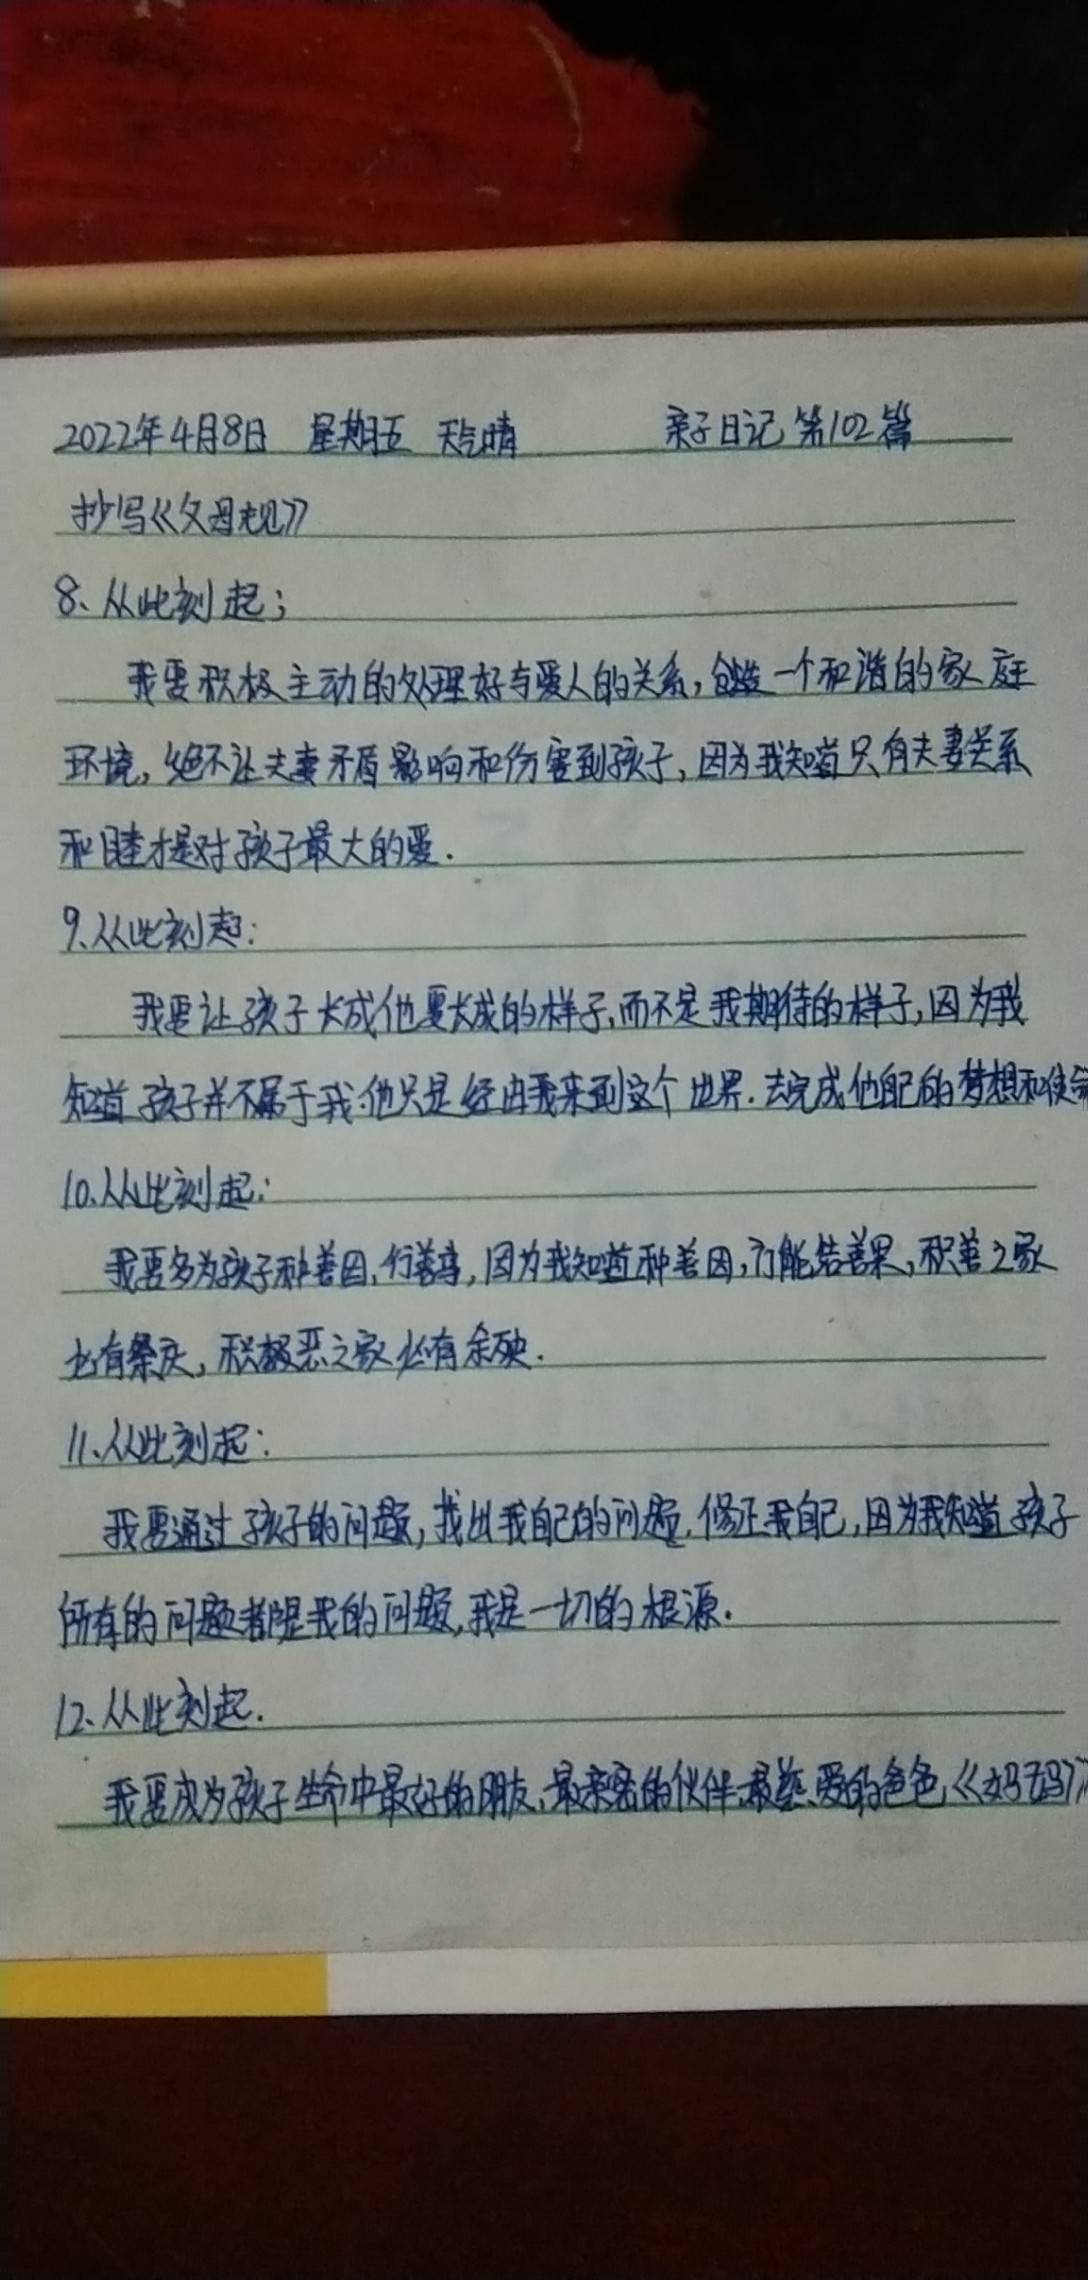 2022年4月8日 星期五 天气晴 亲子日记 第102篇
抄写《父母规》
8、从此刻起；
我要积极主动的处理好与爱人的关系，创造一个和谐的家庭
环境，绝不让夫妻矛盾影响和伤害到孩子，因为我知道只有夫妻关系
和睦才是对孩子最大的爱.
9.从此刻起：
我要让孩子长成他要长成的样子，而不是我期待的样子，因为我
知道孩子并不属于我.他只是经由我来到这个世界.去完成他自己的梦想和使命
10.从此刻起：
我要多为孩子种善因，行善事，因为我知道种善因，方能结善果，积善之家
必有余庆，积极恶之家必有余殃.
11、从此刻起：
我要通过孩子的问题，找出我自己的问题.修正我自己，因为我知道孩子
所有的问题都是我的问题，我是一切的根源.
12、从此刻起.
我要成为孩子生命中最好的朋友、最亲密的伙伴、最慈爱的爸爸《妈妈》